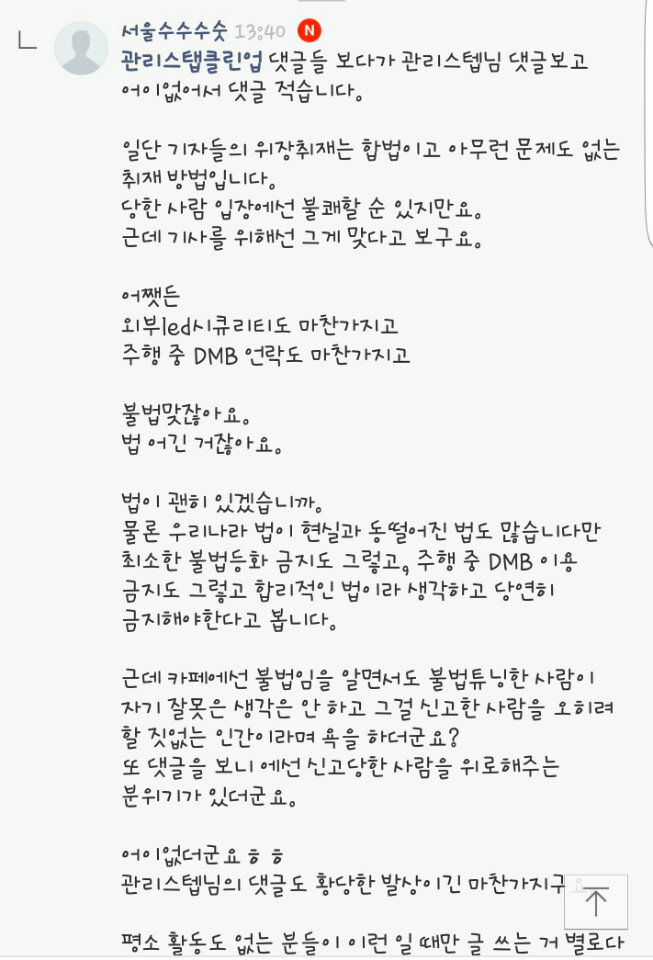 서울수수수숫 13:40 N
관리스탭클린업 댓글들 보다가 관리스텝님 댓글보고
어이없어서 댓글 적습니다.
일단 기자들의 위장취재는 합법이고 아무런 문제도 없는
취재 방법입니다.
당한 사람 입장에선 불쾌할 순 있지만요.
근데 기사를 위해선 그게 맞다고 보구요.
어쨋든
외부led시큐리티도 마찬가지고
주행 중 DMB 언락도 마찬가지고
불법맞잖아요.
법 어긴 거잖아요.
법이 괜히 있겠습니까.
물론 우리나라 법이 현실과 동떨어진 법도 많습니다만
최소한 불법등화 금지도 그렇고, 주행 중 DMB 이용
금지도 그렇고 합리적인 법이라 생각하고 당연히
금지해야한다고 봅니다.
근데 카페에선 불법임을 알면서도 불법튜닝한 사람이
자기 잘못은 생각은 안 하고 그걸 신고한 사람을 오히려
할 짓없는 인간이라며 욕을 하더군요?
또 댓글을 보니 에선 신고당한 사람을 위로해주는
분위기가 있더군요.
어이없더군요 ㅎ ㅎ
관리스텝님의 댓글도 황당한 발상이긴 마찬가지구
평소 활동도 없는 분들이 이런 일 때만 글 쓰는 거 별로다